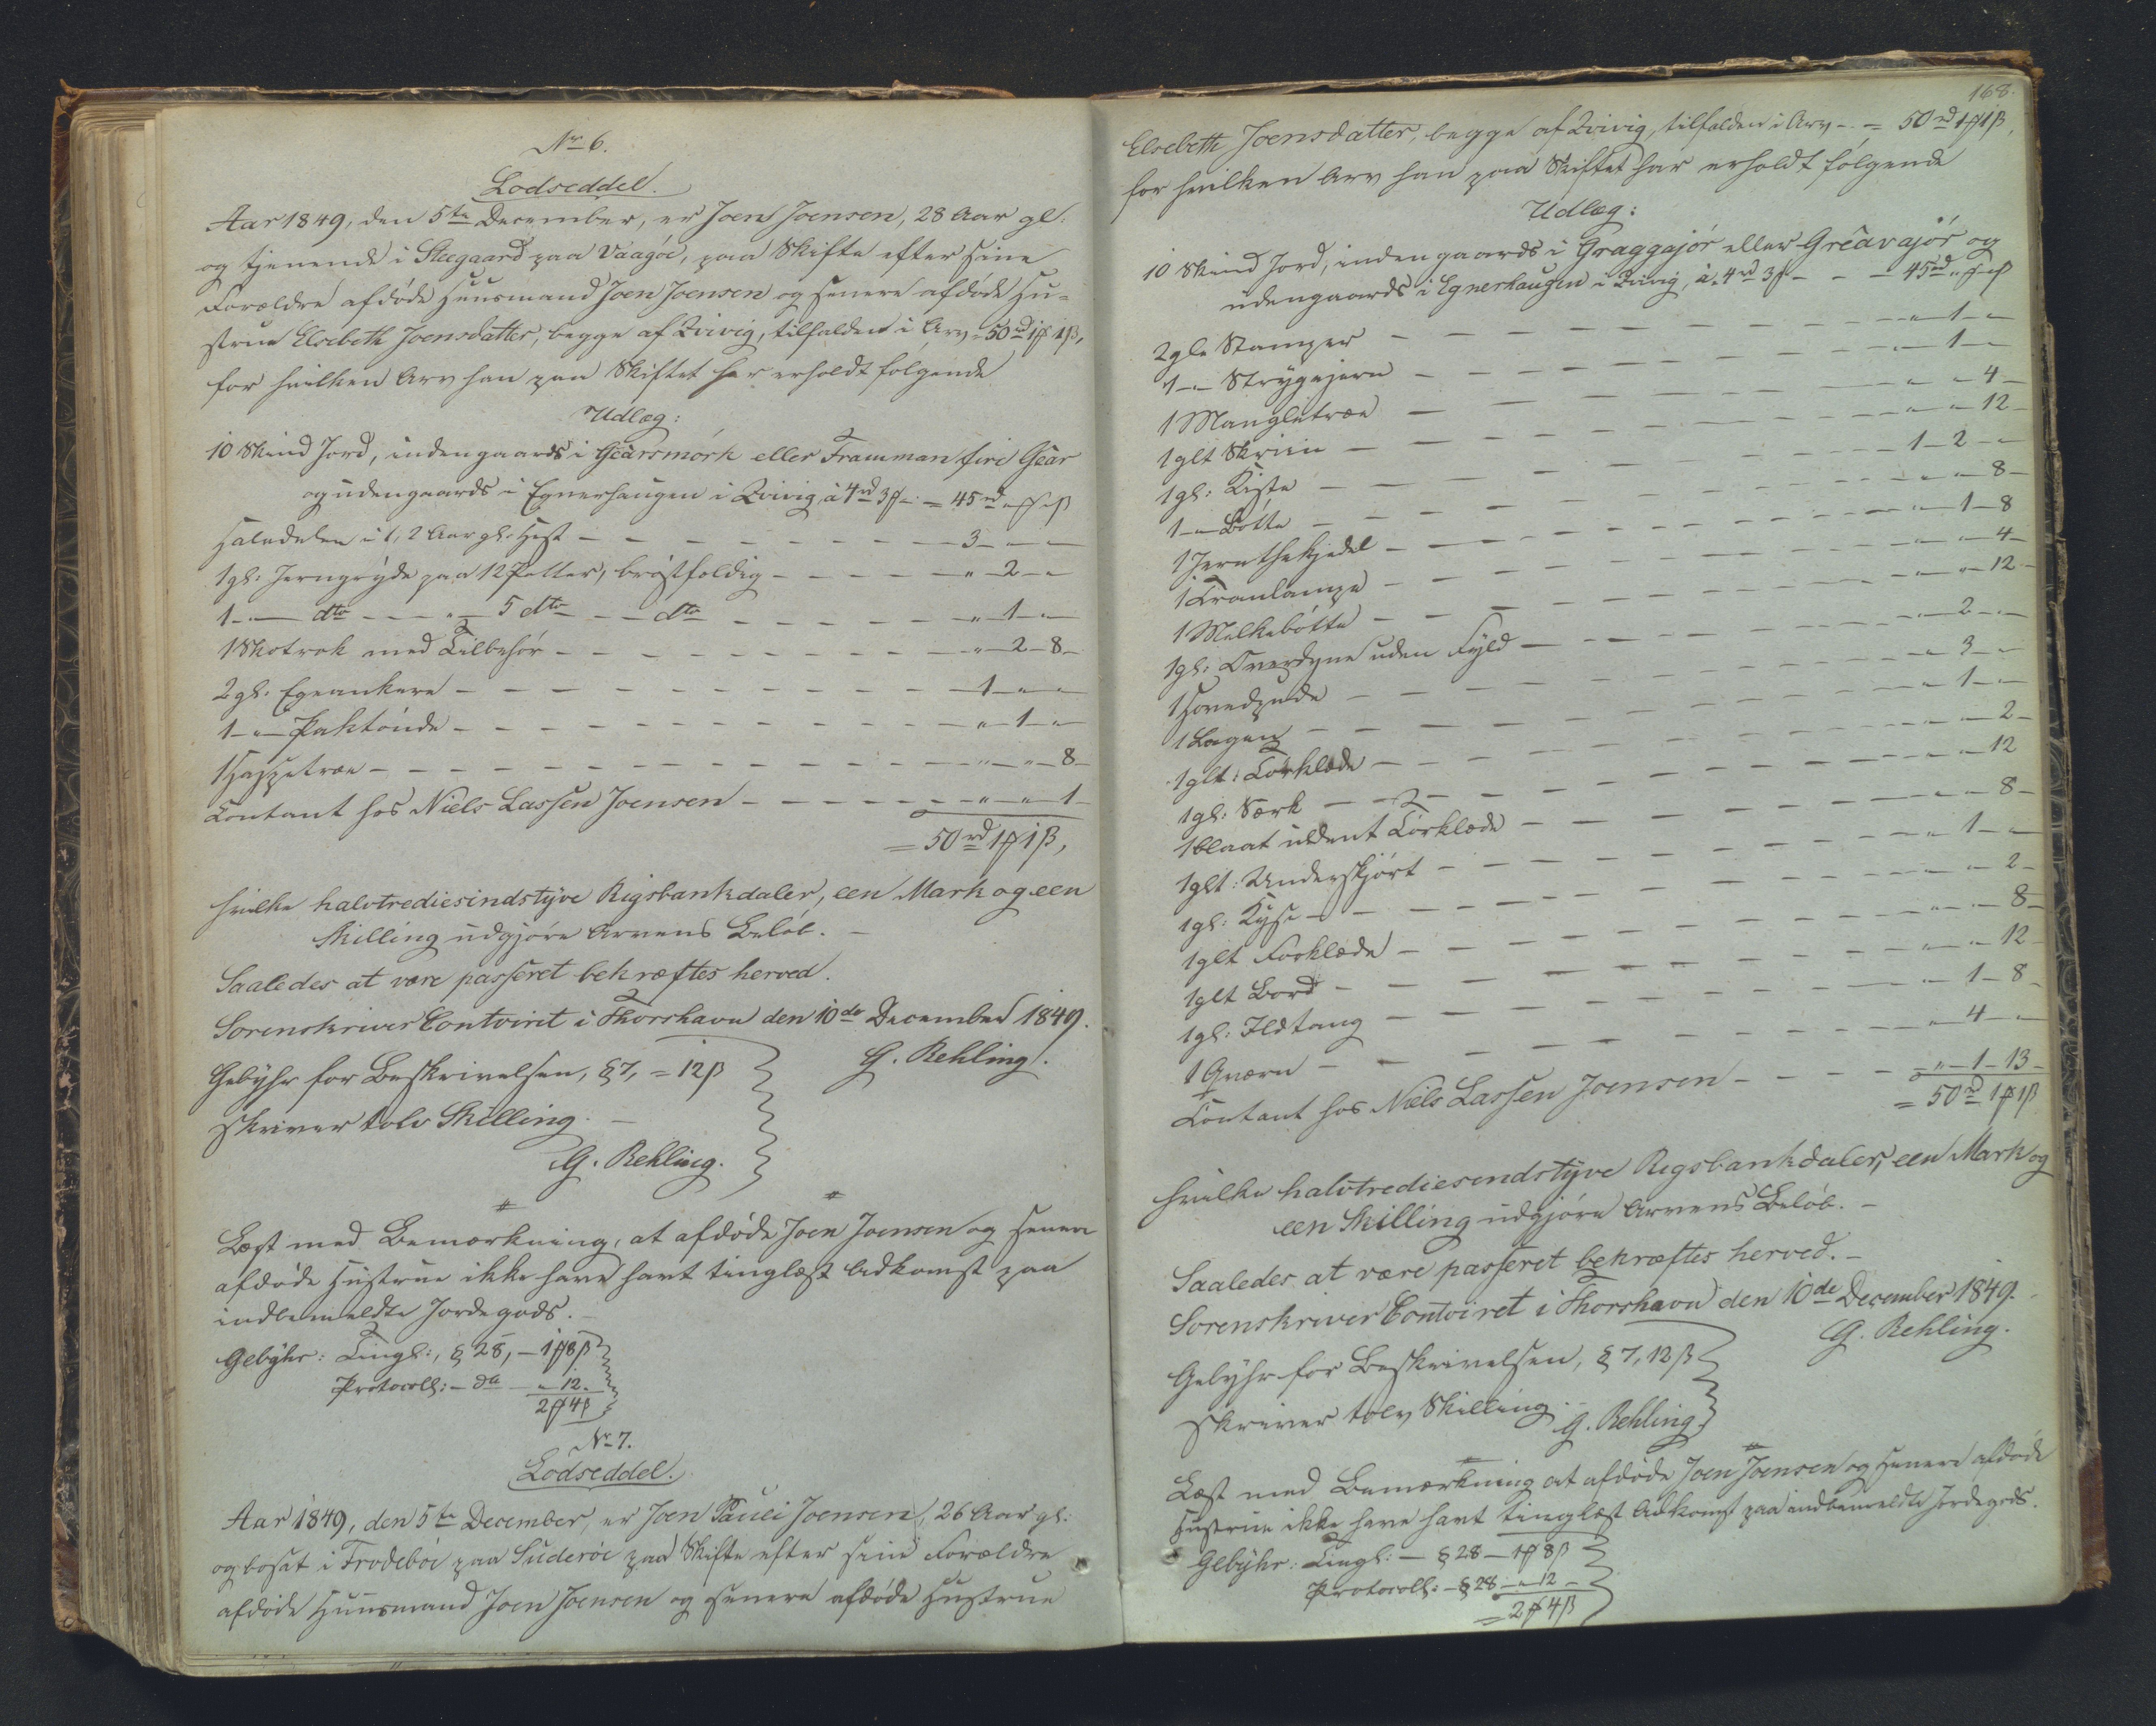 No 6.
Lodseddel.
Aar 1849, den 5te December, er Joen Joensen, 28 Aar gl.
og tjenende i Steegaard paa Vaagøe, paa Skifte efter sine
Forældre afdøde Huusmand Joen Joensen og senere afdøde Hu-
strue Elsebeth Joensdatter, begge af Qvivig, tilfalden i Arv = 50rd 1# 1ß,
for hvilken Arv han paa Skiftet har erholdt følgende
Udlæg:
10 Skind Jord, indengaards i Geärsmørk eller Framman firi Geär
og udengaards i Egnerhaugen i Qvivig, à 4rd 3# - = 45rd " # " ß
Halvdelen i 1, 2 Aar gl. Hest - - - 3 - " - "
1 gl: Jerngryde paa 12 Potter, brøstfældig - - - " - 2 - "
1 - " - dto - - " - 5 dto - - dto - - - " - 1 - "
1 Skotrok med Tilbehør - - - " - 2 - 8 -
2 gl. Egeankere - - - 1 - " - "
1 - " - Paktønde - - - " - 1 - "
1 Happetræe - - - " - " - 8 -
Contant hos Niels Lassen Joensen - - - " - " - 1 -
= 50rd 1# 1ß,
hvilke halvtrediesindstyve Rigsbankdaler, een Mark og een
Skilling udgjøre Arvens Beløb. -
Saaledes at være passeret bekræftes herved.
Sorenskriver Contoiret i Thorshavn den 10de December 1849.
G. Rehling.
Gebyhr for Beskrivelsen, § 7, = 12ß
skriver tolv Skilling. -
G. Rehling.
Læst med Bemærkning, at afdøde Joen Joensen og senere
afdøde Hustrue ikke have havt tinglæst Adkomst paa
indbemeldte Jordegods. -
Gebyhr: Tingl:, § 28, - 1# 8ß
Protocoll: - do - " - 12 -
2# 4ß
No 7.
Lodseddel.
Aar 1849, den 5te December, er Joen Pauli Joensen, 26 Aar gl:
og bosat i Frodebøe paa Suderøe paa Skifte efter sine Forældre
afdøde Huusmand Joen Joensen og senere afdøde Hustrue
168.
Elsebeth Joensdatter, begge af Qvivig, tilfalden i Arv - = 50rd 1# 1ß,
for hvilken Arv han paa Skiftet har erholdt følgende
Udlæg:
10 Skind Jord, indengaards i Graggajør eller Greavajør og
udengaards i Egnerhaugen i Qvivig, à 4rd 3# - - - 45rd " # " ß
2 gle Stamper - - - " - 1 - "
1 - " - Strygejern - - - " - 1 - "
1 Mangletræe - - - " - " - 4 -
1 glt Skriin - - - " - " - 12 -
1 gl: Kiste - - - 1 - 2 - "
1 - " - Bøtte - - - " - " - 8 -
1 Jernthekjedel - - - " - 1 - 8
1 Tranlampe - - - " - " - 4 -
1 Melkebøtte - - - " - " - 12 -
1 gl: Overdyne uden Fyld - - - " - 2 - "
1 Hovedpude - - - " - 3 - "
1 Lagen - - - " - 1 - "
1 glt: Tørklæde - - - " - " - 2 -
1 gl: Særk - - - " - " - 12
1 blaat uldent Tørklæde - - - " - " - 8 -
1 glt: Underskjørt - - - " - 1 - "
1 gl: Kyse - - - " - " - 2 -
1 glt Forklæde - - - " - " - 8 -
1 glt Bord - - - " - " - 12
1 gl: Ildtang - - - " - 1 - 8
1 Qværn - - - " - 4 - "
Contant hos Niels Lassen Joensen - - - " - 1 - 13 -
= 50rd 1# 1ß
hvilke halvtrediesendstyve Rigsbankdaler, een Mark og
een Skilling udgjøre Arvens Beløb. -
Saaledes at være passeret bekræftes herved. -
Sorenskriver Contoiret i Thorshavn den 10de December 1849.
G. Rehling.
Gebyhr for Beskrivelsen, § 7, 12ß
skriver tolv Skilling. -
G. Rehling.
Læst med Bemærkning at afdøde Joen Joensen og senere afdøde
Hustrue ikke have havt tinglæst Adkomst paa indbemeldte Jordegods.
Gebyhr: Tingl: - § 28 - 1# 8ß
Protocoll: - § 28 - " - 12 -
= 2# 4ß